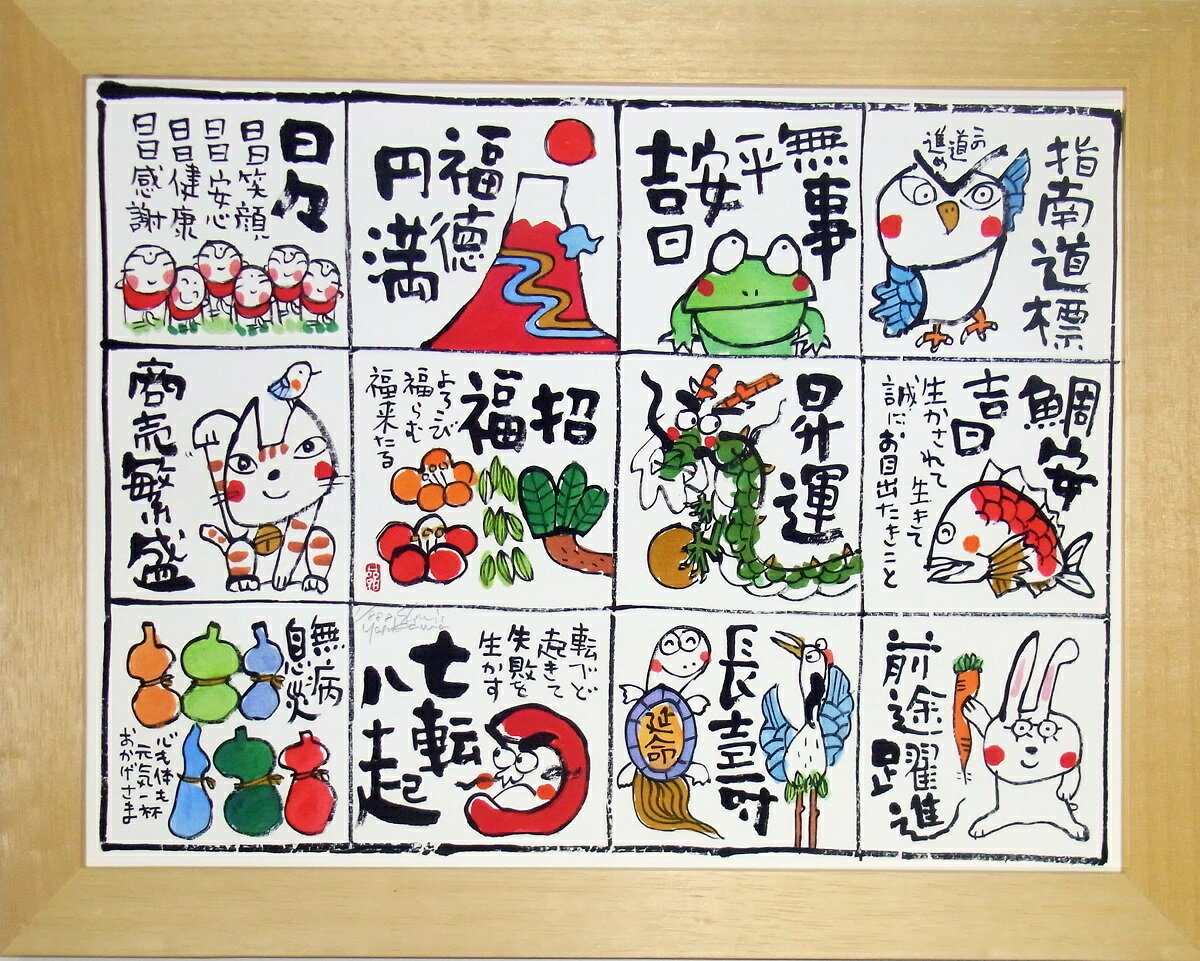 指南道標
この
道
進め
無事
平
安
吉日
福徳
円満
日々
日日笑顔
日日安心
日日健康
日日感謝
鯛安
吉日
生かされて 生きて
誠にお目出たきこと
昇運
招
福
よろこび
福らむ
福来たる
商売繁盛
前途躍進
長寿
延命
七転
八起
転べど
起きて
失敗を
生かす
無病
息災
心も体も
元気一杯
おかげさま